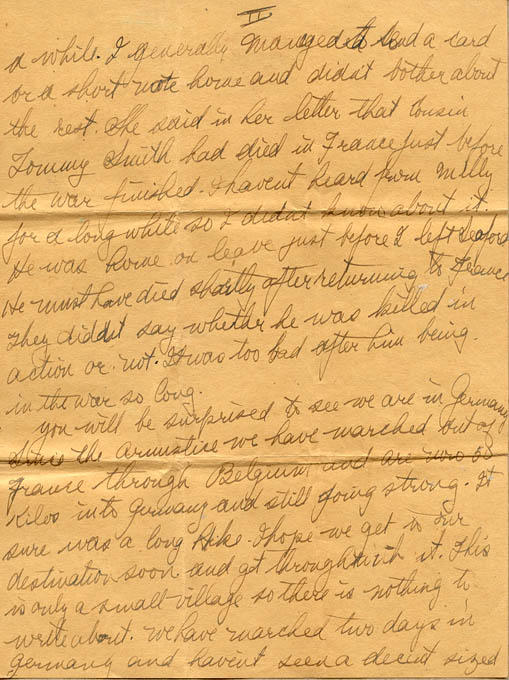 II
a while. I generally managed to send a card
or a short note home and didn't bother about
the rest. She said in her letter that Cousin
Tommy Smith had died in France just before
the war finished. I havent heard from Milly
for a long while so I didn't know about it.
He was home on leave just before I left Seaford
He must have died shortly after returning to France
They didn't say whether he was killed in
action or not. It was too bad after him being
in the war so long.
you will be surprised to see we are in Germany
Since the armistice we have marched out of
France through Belgium, and are now 60
Kilos into Germany and still going strong. It
sure was a long hike. I hope we get to our
destination soon and get through with it. This
is only a small village so there is nothing to
write about. We have marched two days in
Germany and havent seen a decent sized